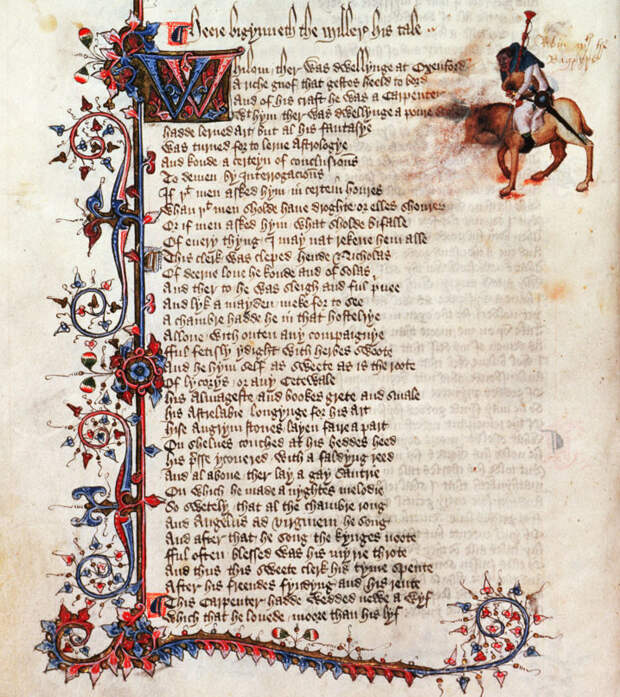 Heere bigynneth the Millere his tale
Whilom ther was dwellynge at Oxenford
A riche gnof that gestes heeld to bord
And of his craft he was a Carpenter
With hym ther was dwellynge a poure
hadde lerned Art but al his fantasye
Was turned for to lerne Astrologye
And koude a certeyn of conclusions
To demen by Interrogacions
If þt men asked hym in certein houres
Whan þt men sholde haue droghte or elles shoures
Or if men asked hym what sholde bifalle
Of euery thyng I may nat rekene hem alle
This clerk was cleped hende Nicholas
Of deerne loue he koude and of solas
And ther to he was sleigh and ful priuee
And lyk a mayden meke for to see
A chambre hadde he in that hostelrye
Allone with outen any compaignye
fful fetisly ydight with herbes swoote
And he hym self as sweete as is the roote
Of lycorys or any Cetewale
his Almageste and bookes grete and smale
his Astrelabie longynge for his Art
hise Augrym stones layen faire a part
On shelues couched at his beddes heed
his presse ycouered with a faldyng reed
And al aboue ther lay a gay Sautrie
On which he made a nyghtes melodie
So swetely that al the chambre rong
And Angelus ad virginem he song
And after that he song the kynges noote
fful often blessed was his myrie throte
And thus this sweete clerk his tyme spente
After his freendes fyndyng and his rente
This Carpenter hadde wedded newe a wyf
Which that he louede moore than his lyf